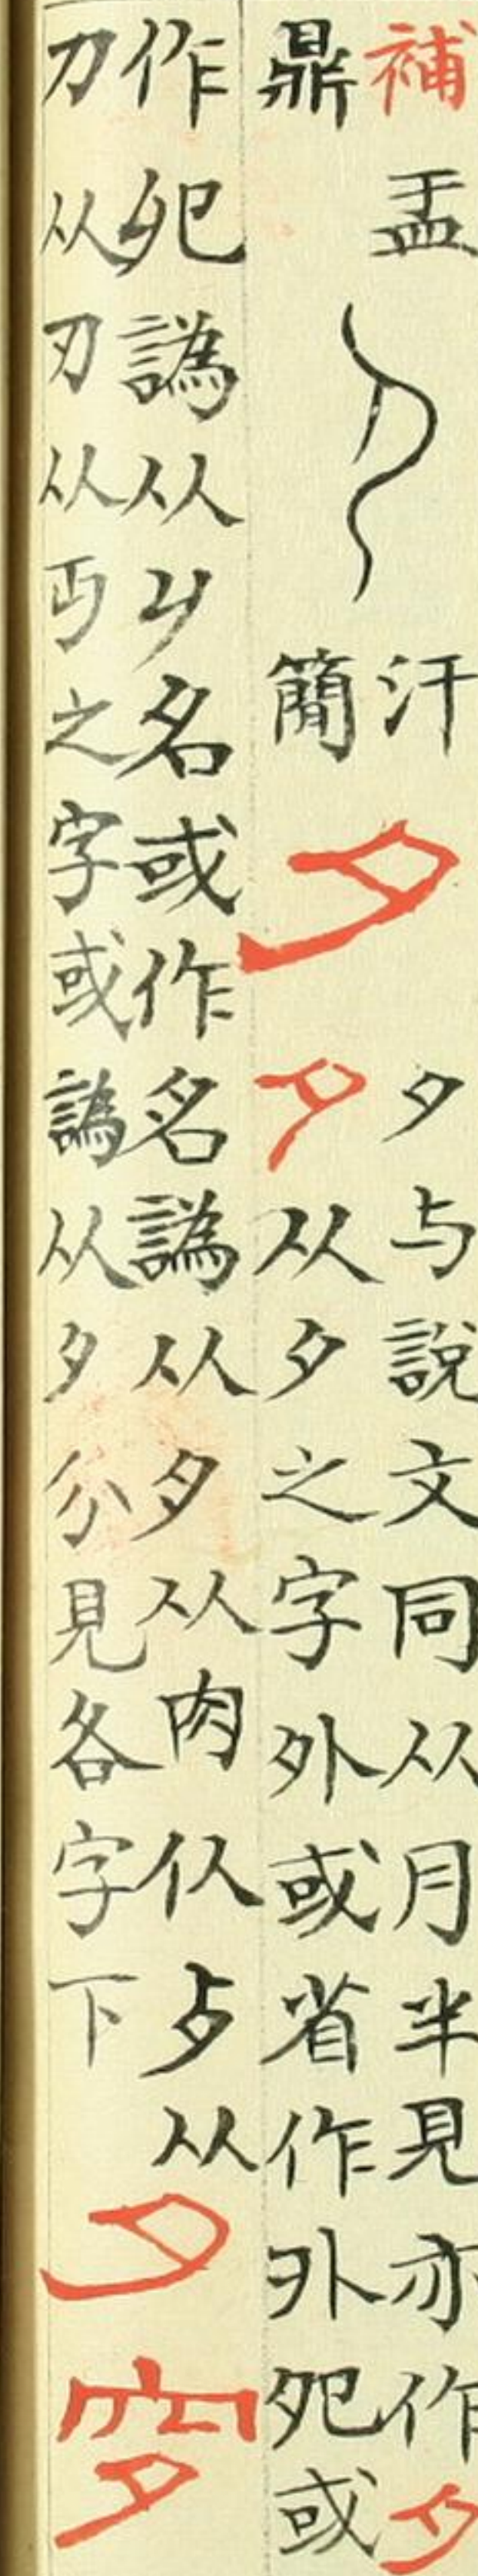 補盂
鼎
汗
簡
夕
夕与說文同从月半見亦作夕
夕从夕之字外或省作外夗或
作夗譌从丩名或作名譌从夕从肉仌歺从
刀从刃从丏之字或譌从夕分見各字下
夕
穸